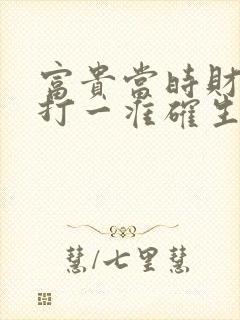 富貴當時財
打一准確生
慧/七里慧